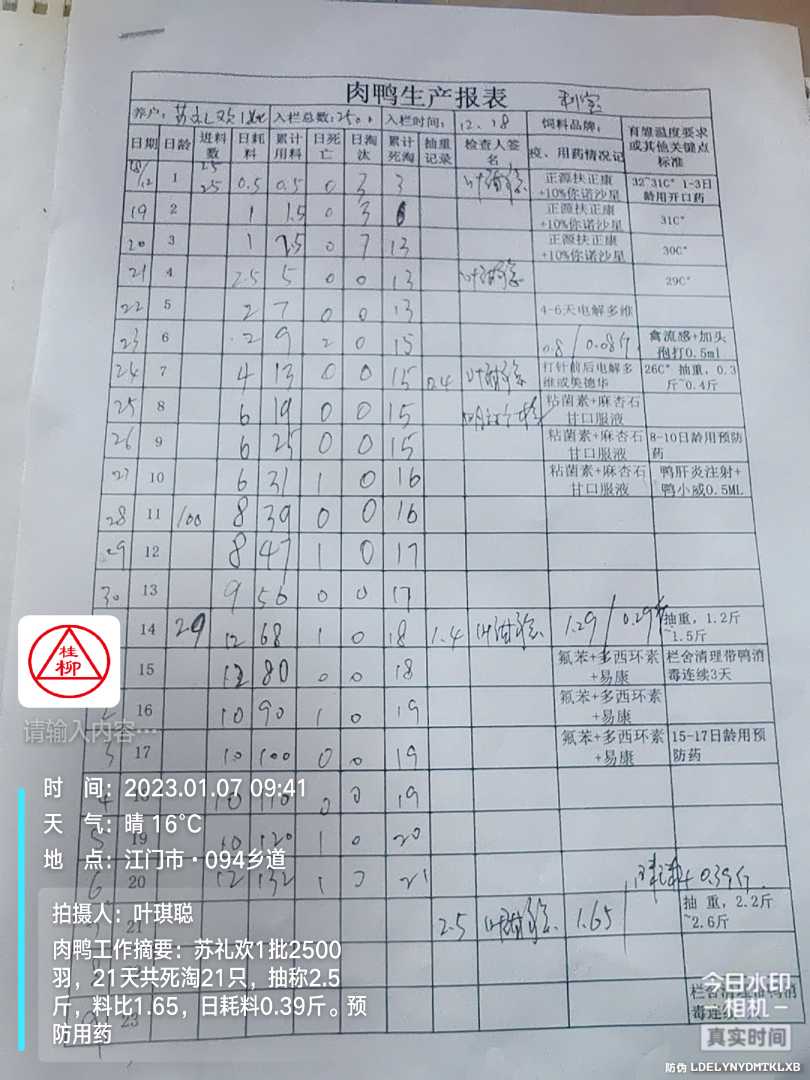 肉鸭生产报表
养户: 苏礼欢1批 入栏总数:2500 入栏时间: 12.18 饲料品牌: 育雏温度要求或其他关键点标准
日期 日龄 进料数 日耗料 累计用料 日死亡 日淘汰 累计死淘 抽重记录 检查人签名 疫、用药情况记
18/12 1 25 25 0.5 0.5 0 3 3 正源扶正康+10%你诺沙星 32~31C° 1-3日龄用开口药
19 2 1 1.5 0 3 6 正源扶正康+10%你诺沙星 31C°
20 3 1 2.5 0 7 13 正源扶正康+10%你诺沙星 30C°
21 4 2.5 5 0 0 13 29C°
22 5 2 7 0 0 13 4-6天电解多维
23 6 2 9 2 0 15 0.8/0.08斤 禽流感+加头孢打0.5ml
24 7 4 13 0 0 15 0.4 打针前后电解多维或奥德华 26C° 抽重,0.3斤~0.4斤
25 8 6 19 0 0 15 粘菌素+麻杏石甘口服液
26 9 6 25 0 0 15 粘菌素+麻杏石甘口服液 8-10日龄用预防药
27 10 6 31 1 0 16 粘菌素+麻杏石甘口服液 鸭肝炎注射+鸭小威0.5ML
28 11 100 8 39 0 0 16
29 12 8 47 1 0 17
30 13 9 56 0 0 17
14 29 12 68 1 0 18 1.4 1.29/0.29斤 抽重,1.2斤~1.5斤
15 12 80 0 0 18 氟苯+多西环素+易康 栏舍清理带鸭消毒连续3天
16 10 90 1 0 19 氟苯+多西环素+易康
3 17 10 100 0 0 19 氟苯+多西环素+易康 15-17日龄用预防药
4 18 10 110 0 0 19
5 19 10 120 1 0 20
6 20 12 132 1 0 21
21 2.5 1.65 0.39斤 抽重,2.2斤~2.6斤
23 毒连续
桂柳
请输入内容…
时 间: 2023.01.07 09:41
天 气: 晴 16°C
地 点: 江门市·094乡道
拍摄人: 叶琪聪
肉鸭工作摘要: 苏礼欢1批2500
羽，21天共死淘21只，抽称2.5
斤，料比1.65，日耗料0.39斤。预
防用药
今日水印
相机
真实时间
防伪 LDELYNYDMTKLXB